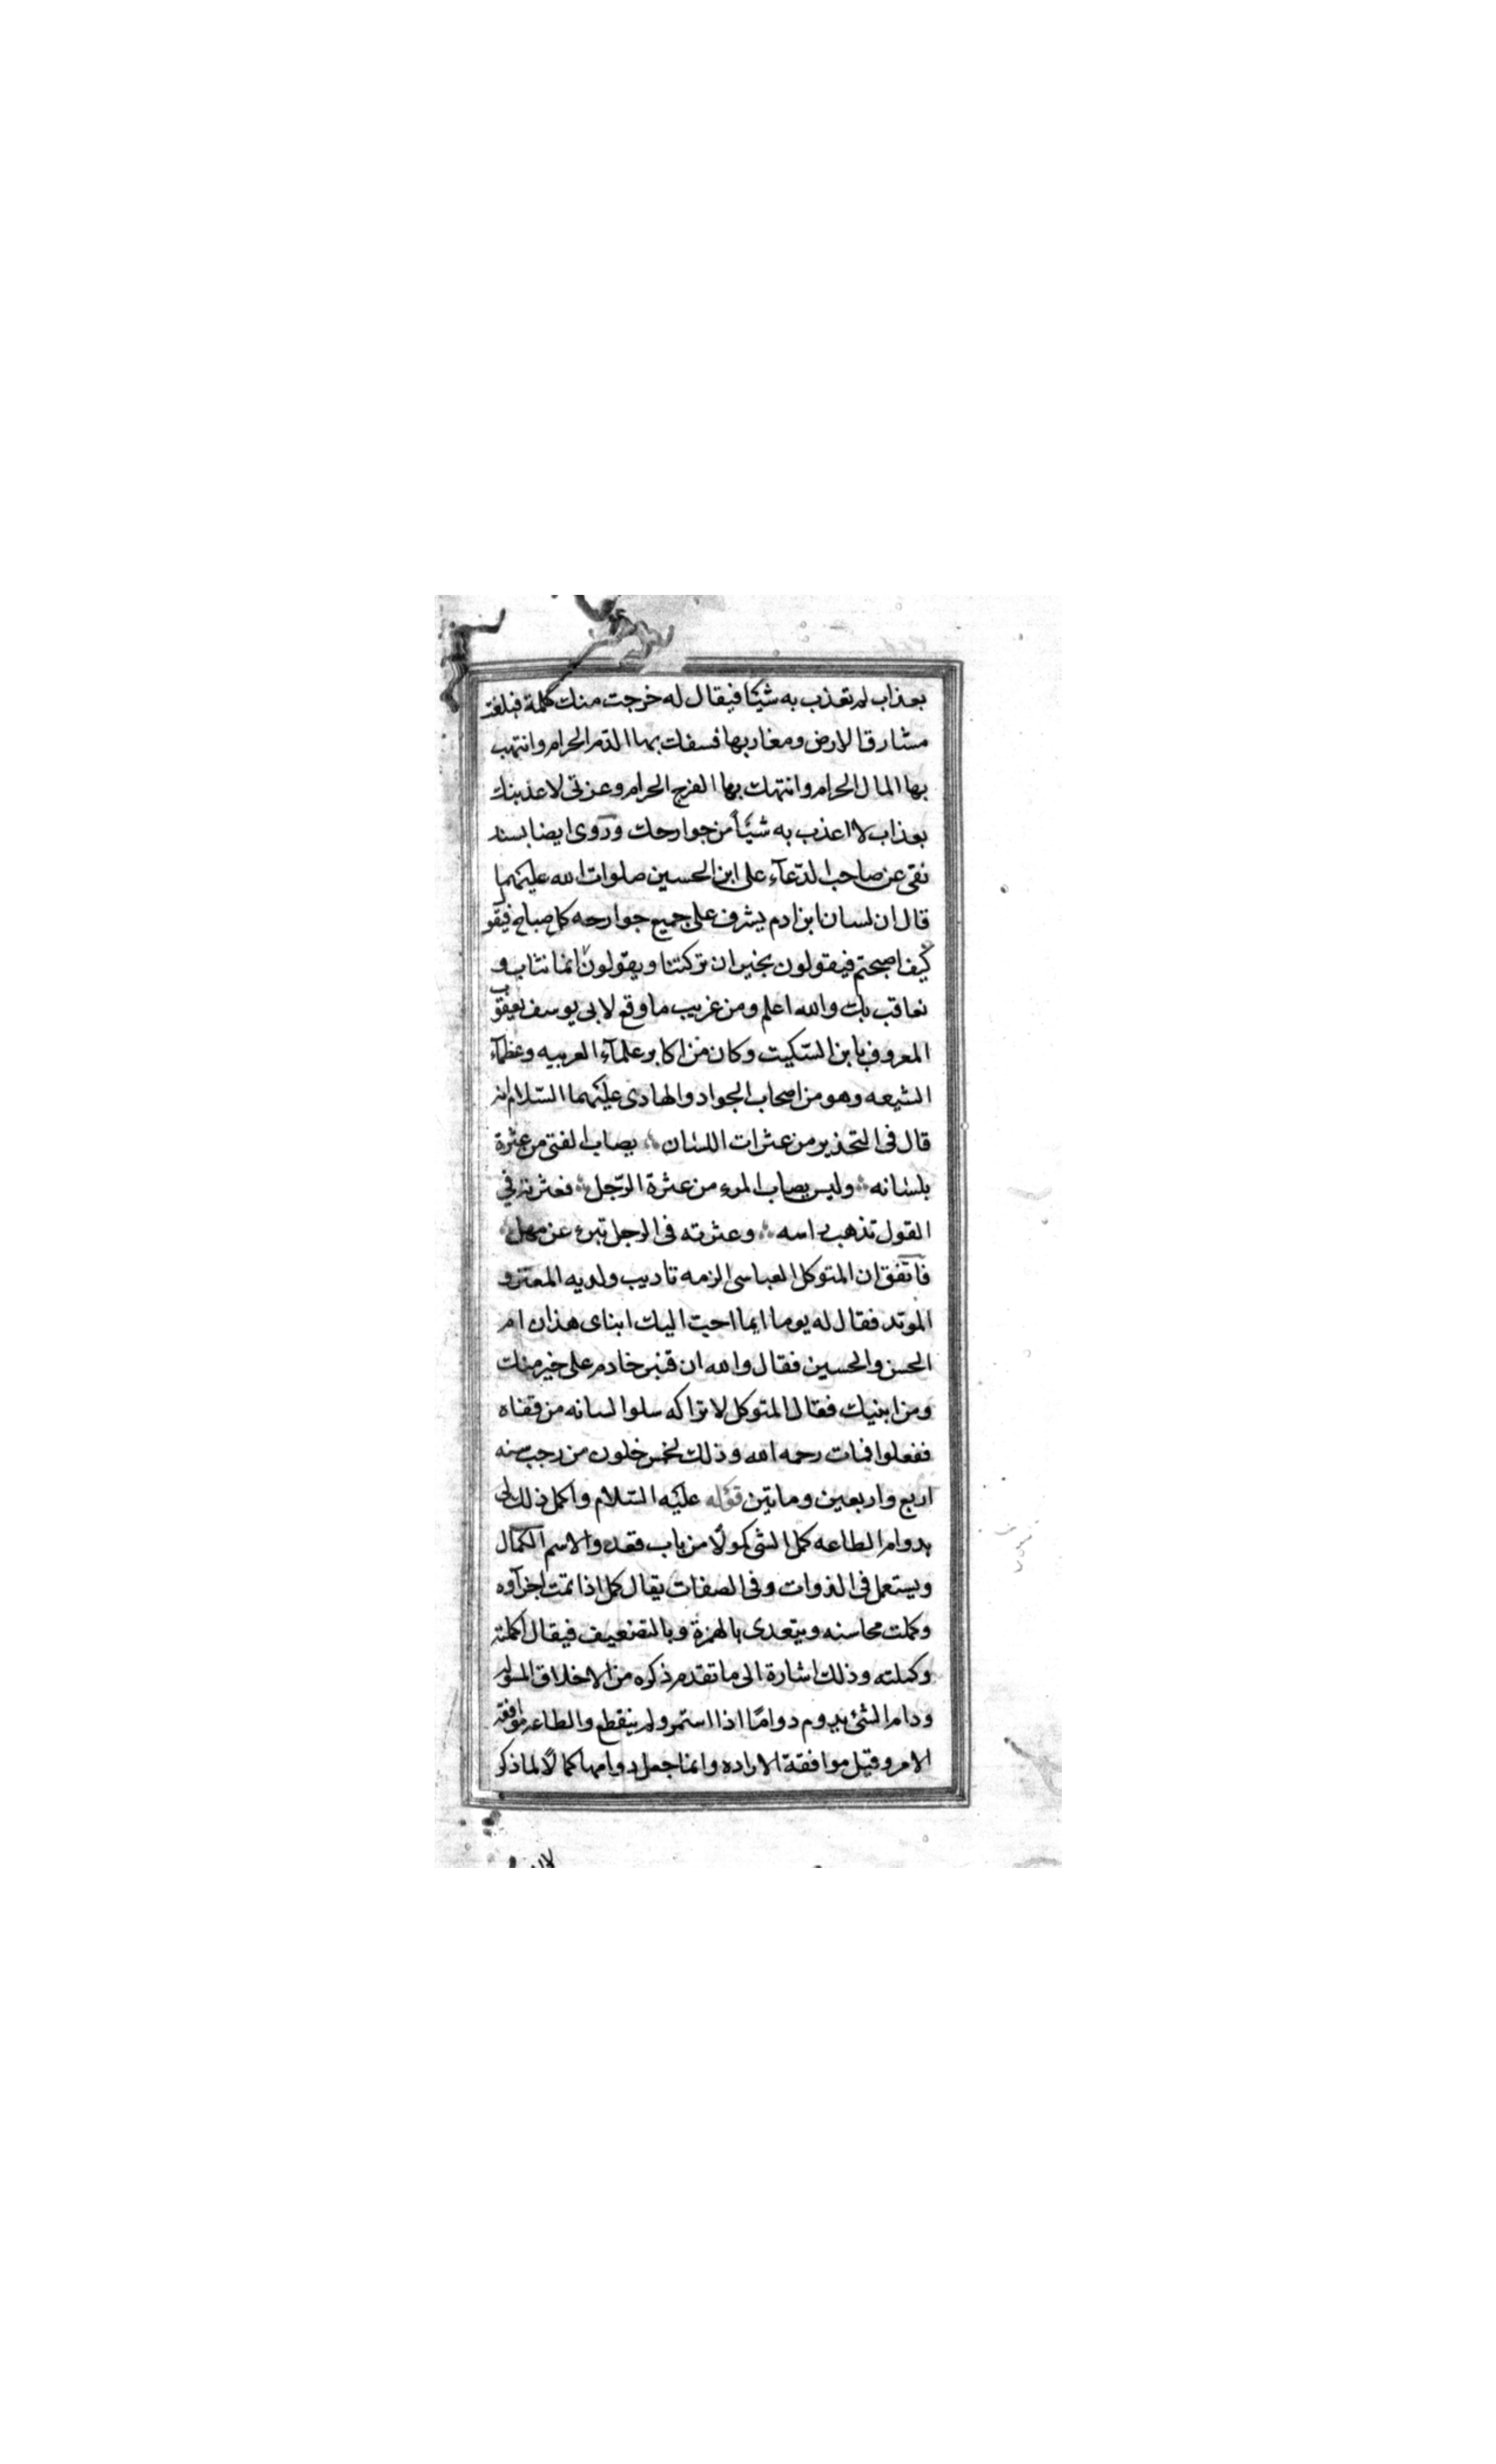 بعذاب لم تعذب به شيئا فيقال له خرجت منك كلمة فبلغت
مشارق الارض ومغاربها فسفك بها الدم الحرام وانتهب
بها المال الحرام وانتهك بها الفرج الحرام وعزتي لاعذبنك
بعذاب لا اعذب به شيئاً من جوارحك وروى ايضا بسند
نقى عن صاحب الدّعآء على ابن الحسين صلوات الله عليهما
قال ان لسان ابن ادم يشرف على جميع جوارحه كل صباح فيقو
كيف اصبحتم فيقولون بخير ان تركتنا ويقولون انما نثاب و
نعاقب بك والله اعلم ومن غريب ما وقع لابى يوسف يعقوب
المعروف بابن السّكيت وكان من اكابر علمآء العربيه وعظمآء
الشيعه وهو من اصحاب الجواد والهادى عليهما السّلام انه
قال فى التحذير من عثرات اللسان يصاب الفتى من عثرة
بلسانه وليس يصاب المرء من عثرة الرّجل فعثرته في
القول تذهب راسه وعثرته فى الرجل تبرء عن مهل
فاتّفق ان المتوكل العباسى الزمه تاديب ولديه المعتز و
الموتد فقال له يوما ايما احب اليك ابناى هذان ام
الحسن والحسين فقال والله ان قنبر خادم على خير منك
ومن ابنيك فقال المتوكل لاتراكه سلوا لسانه من قفاه
ففعلوا فمات رحمه الله وذلك لخمس خلون من رجب سنه
اربع واربعين وماتين قوله عليه السّلام واكمل ذلك لى
بدوام الطاعه كمل الشى كمولًا من باب قعد والاسم الكمال
ويستعمل فى الذوات وفى الصفات يقال كمل اذا تمت اجزآوه
وكملت محاسنه ويتعدى بالهمزة وبالتضعيف فيقال اكملته
وكملته وذلك اشارة الى ما تقدم ذكره من الاخلاق المسولة
ودام الشئ يدوم دوامًا اذا استمر ولم ينقطع والطاعه موافقة
الامر وقيل موافقة الاراده وانما جعل دوامها كمالًا لما ذكر